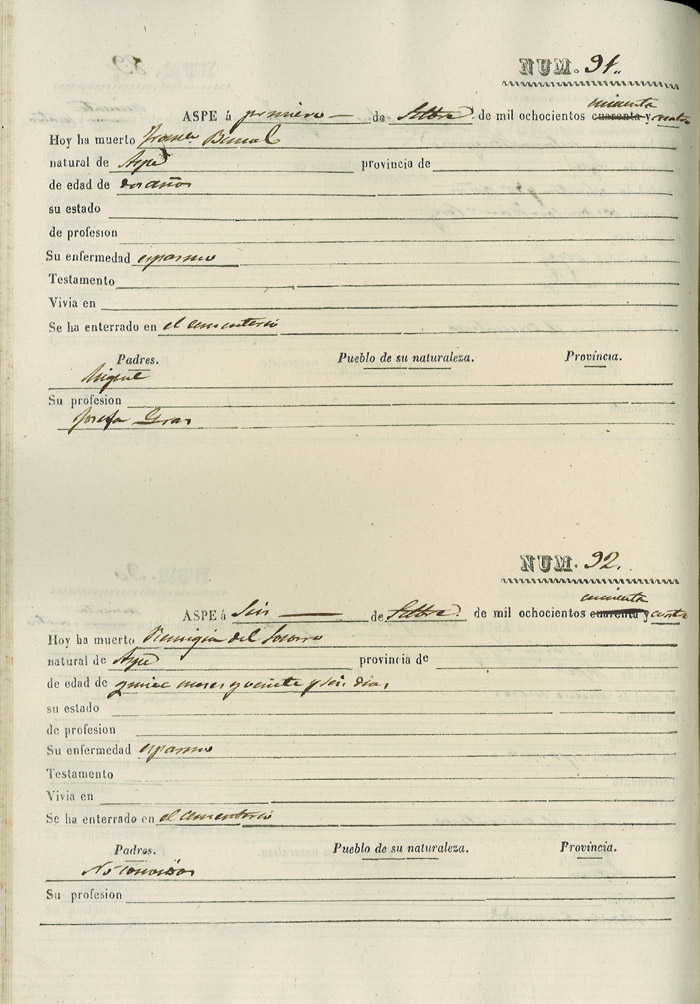 NUM. 91.
cincuenta
ASPE á primero de Setbre. de mil ochocientos cuarenta y cuatro
Hoy ha muerto Franca. Bernal
natural de Aspe provincia de
de edad de dos años
su estado
de profesion
Su enfermedad espasmo
Testamento
Vivia en
Se ha enterrado en el cementerio
Padres. Pueblo de su naturaleza. Provincia.
Miguel
Su profesion
Josefa Gras
NUM. 92.
cincuenta
ASPE á Seis de Setbre. de mil ochocientos cuarenta y cuatro
Hoy ha muerto Remigia del Socorro
natural de Aspe provincia de
de edad de quince meses y veinte y seis dias
su estado
de profesion
Su enfermedad espasmo
Testamento
Vivia en
Se ha enterrado en el cementerio
Padres. Pueblo de su naturaleza. Provincia.
No conocidos
Su profesion